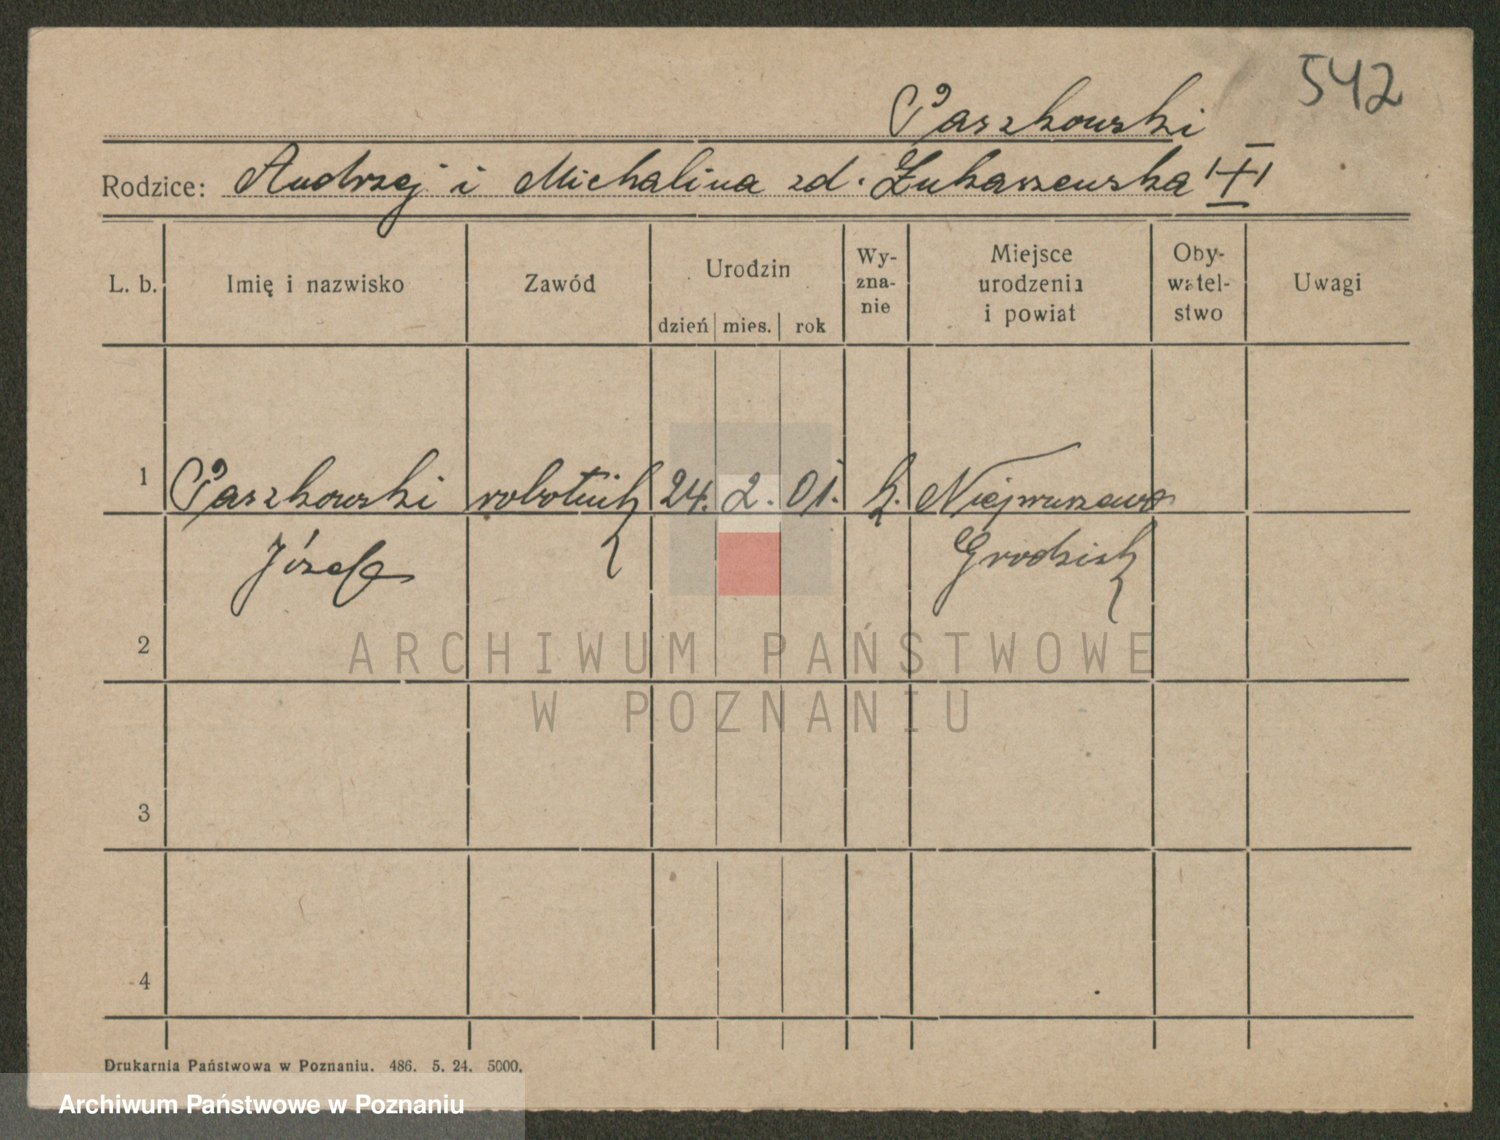 542
Paszkowski
Rodzice: Andrzej i Michalina zd. Łukaszewska
L. b. Imię i nazwisko Zawód Urodzin dzień mies. rok Wy-zna-nie Miejsce urodzenia i powiat Oby-watel-stwo Uwagi
1 Paszkowski robotnik 24. 2. 01. k. Niepruszewo
Józef Grodzisk
2
3
4
ARCHIWUM PAŃSTWOWE
W POZNANIU
Drukarnia Państwowa w Poznaniu. 486. 5. 24. 5000.
Archiwum Państwowe w Poznaniu